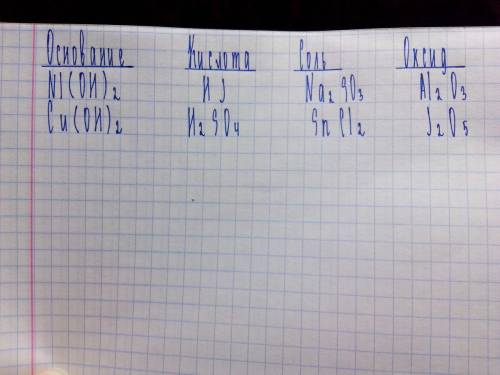 Основание Кислота Соль Оксид
Ni(OH)₂ HJ Na₂SO₃ Al₂O₃
Cu(OH)₂ H₂SO₄ SnCl₂ J₂O₅